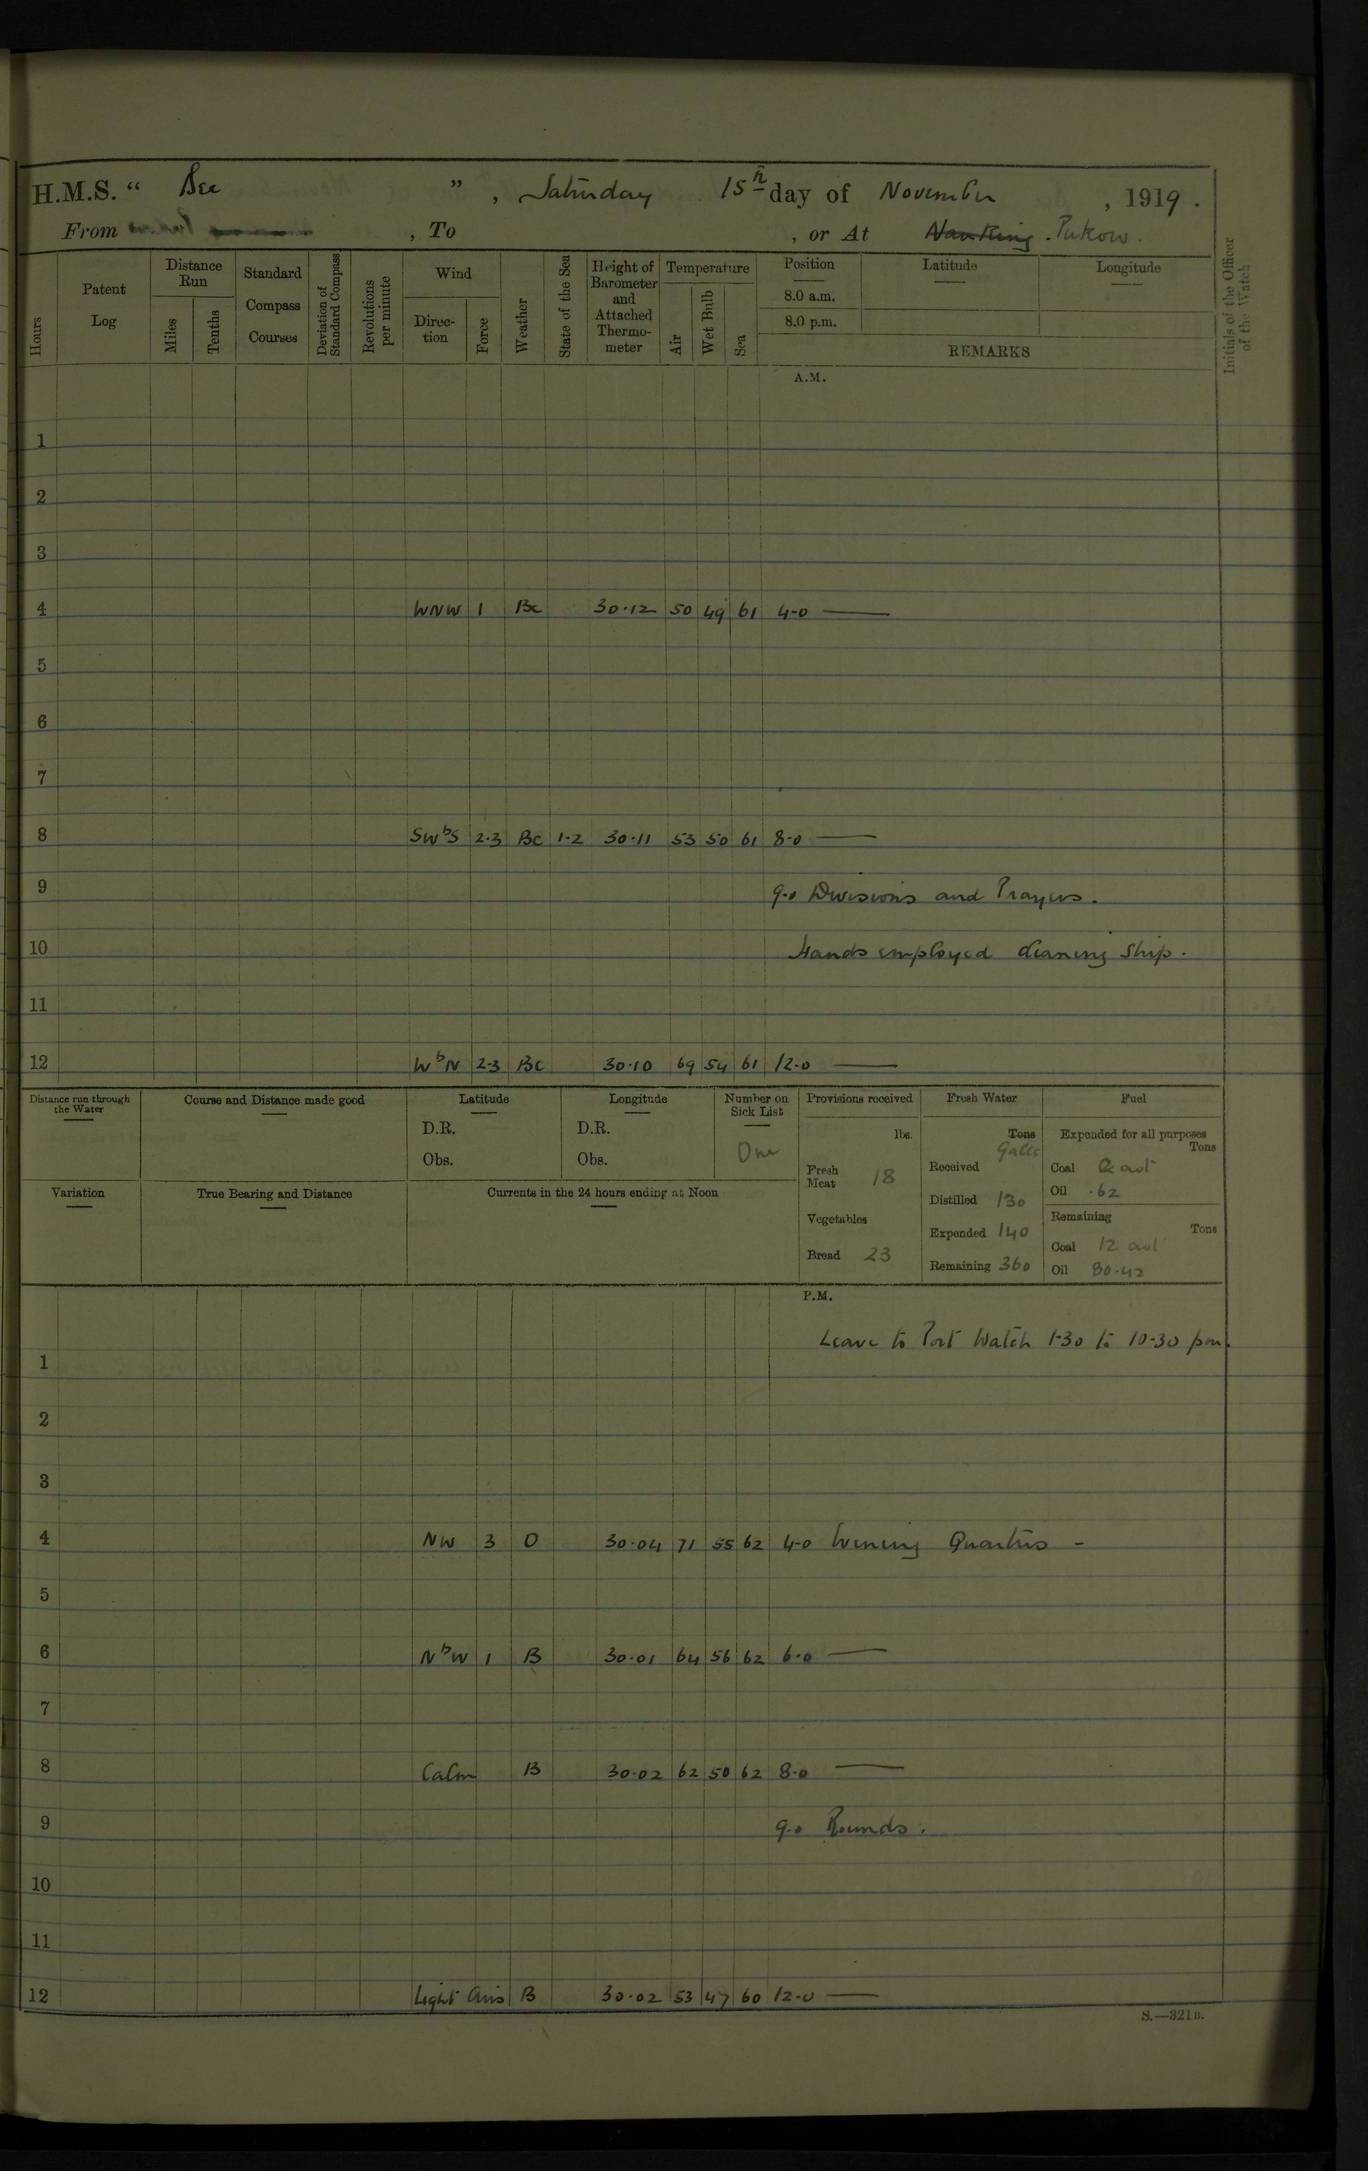 H.M.S. “ Bee ” , Saturday 15th day of November , 1919 .
From , To , or At Nanking . Pukow .
Hours
Patent Log
Distance Run
Miles
Tenths
Standard Compass Courses
Deviation of Standard Compass
Revolutions per minute
Wind
Direc-tion
Force
Weather
State of the Sea
Height of Barometer and Attached Thermo-meter
Temperature
Air
Wet Bulb
Sea
Position
8.0 a.m.
8.0 p.m.
Latitude
Longitude
REMARKS
Initials of the Officer of the Watch
A.M.
1
2
3
4 WNW 1 Bc 30·12 50 49 61 4-0 —
5
6
7
8 SWbS 2·3 Bc 1-2 30·11 53 50 61 8-0 —
9 9-0 Divisions and Prayers.
10 Hands employed cleaning Ship.
11
12 WbN 2-3 Bc 30·10 69 54 61 12-0 —
Distance run through the Water
Course and Distance made good
Latitude
D.R.
Obs.
Longitude
D.R.
Obs.
Number on Sick List
One
Variation
True Bearing and Distance
Currents in the 24 hours ending at Noon
Provisions received
lbs.
Fresh Meat 18
Vegetables
Bread 23
Fresh Water
Tons
Galls
Received
Distilled 130
Expended 140
Remaining 360
Fuel
Expended for all purposes
Tons
Coal cwt
Oil ·62
Remaining
Tons
Coal 12 cwt
Oil 80·42
P.M.
Leave to Port Watch 1-30 to 10-30 pm.
1
2
3
4 NW 3 O 30·04 71 55 62 4-0 Evening Quarters -
5
6 NbW 1 B 30·01 64 56 62 6-0 —
7
8 Calm B 30·02 62 50 62 8-0 —
9 9-0 Rounds.
10
11
12 Light Airs B 30·02 53 47 60 12-0 —
S.—321B.